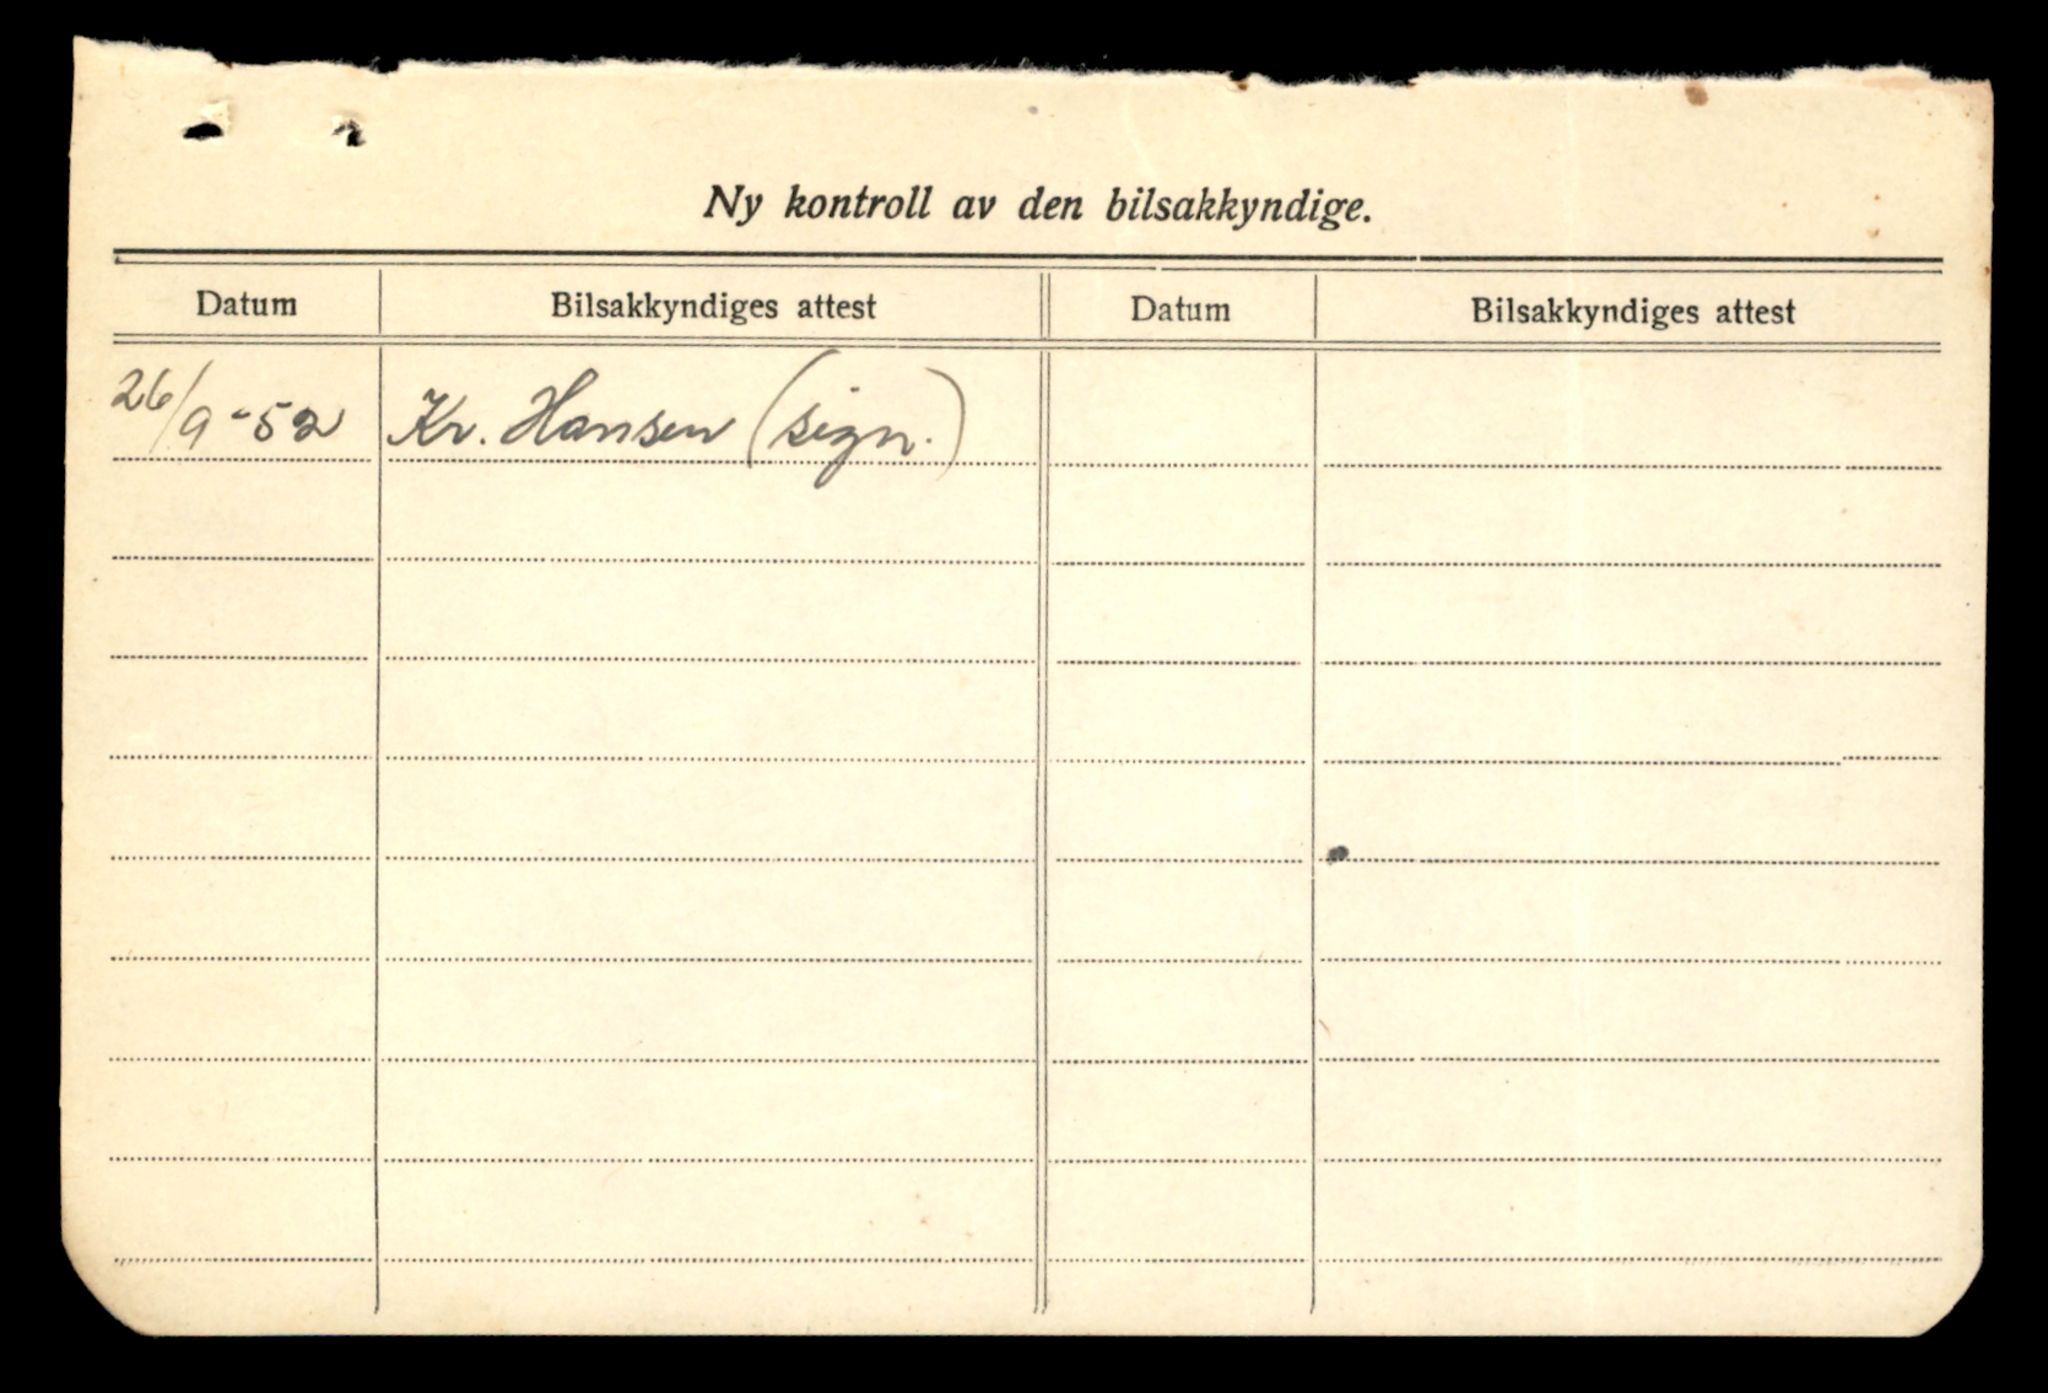 Ny kontroll av den bilsakkyndige.
Datum Bilsakkyndiges attest Datum Bilsakkyndiges attest
26/9-52 Kr. Hansen (sign.)